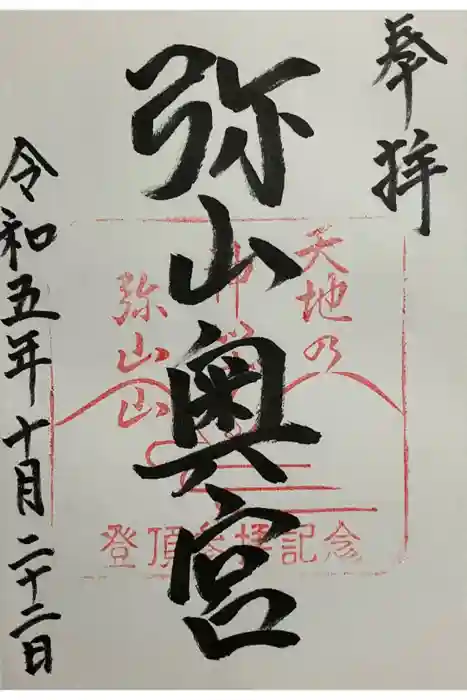 奉拝
弥山奥宮
天地の
神
弥山
登頂参拝記念
令和五年十月二十二日